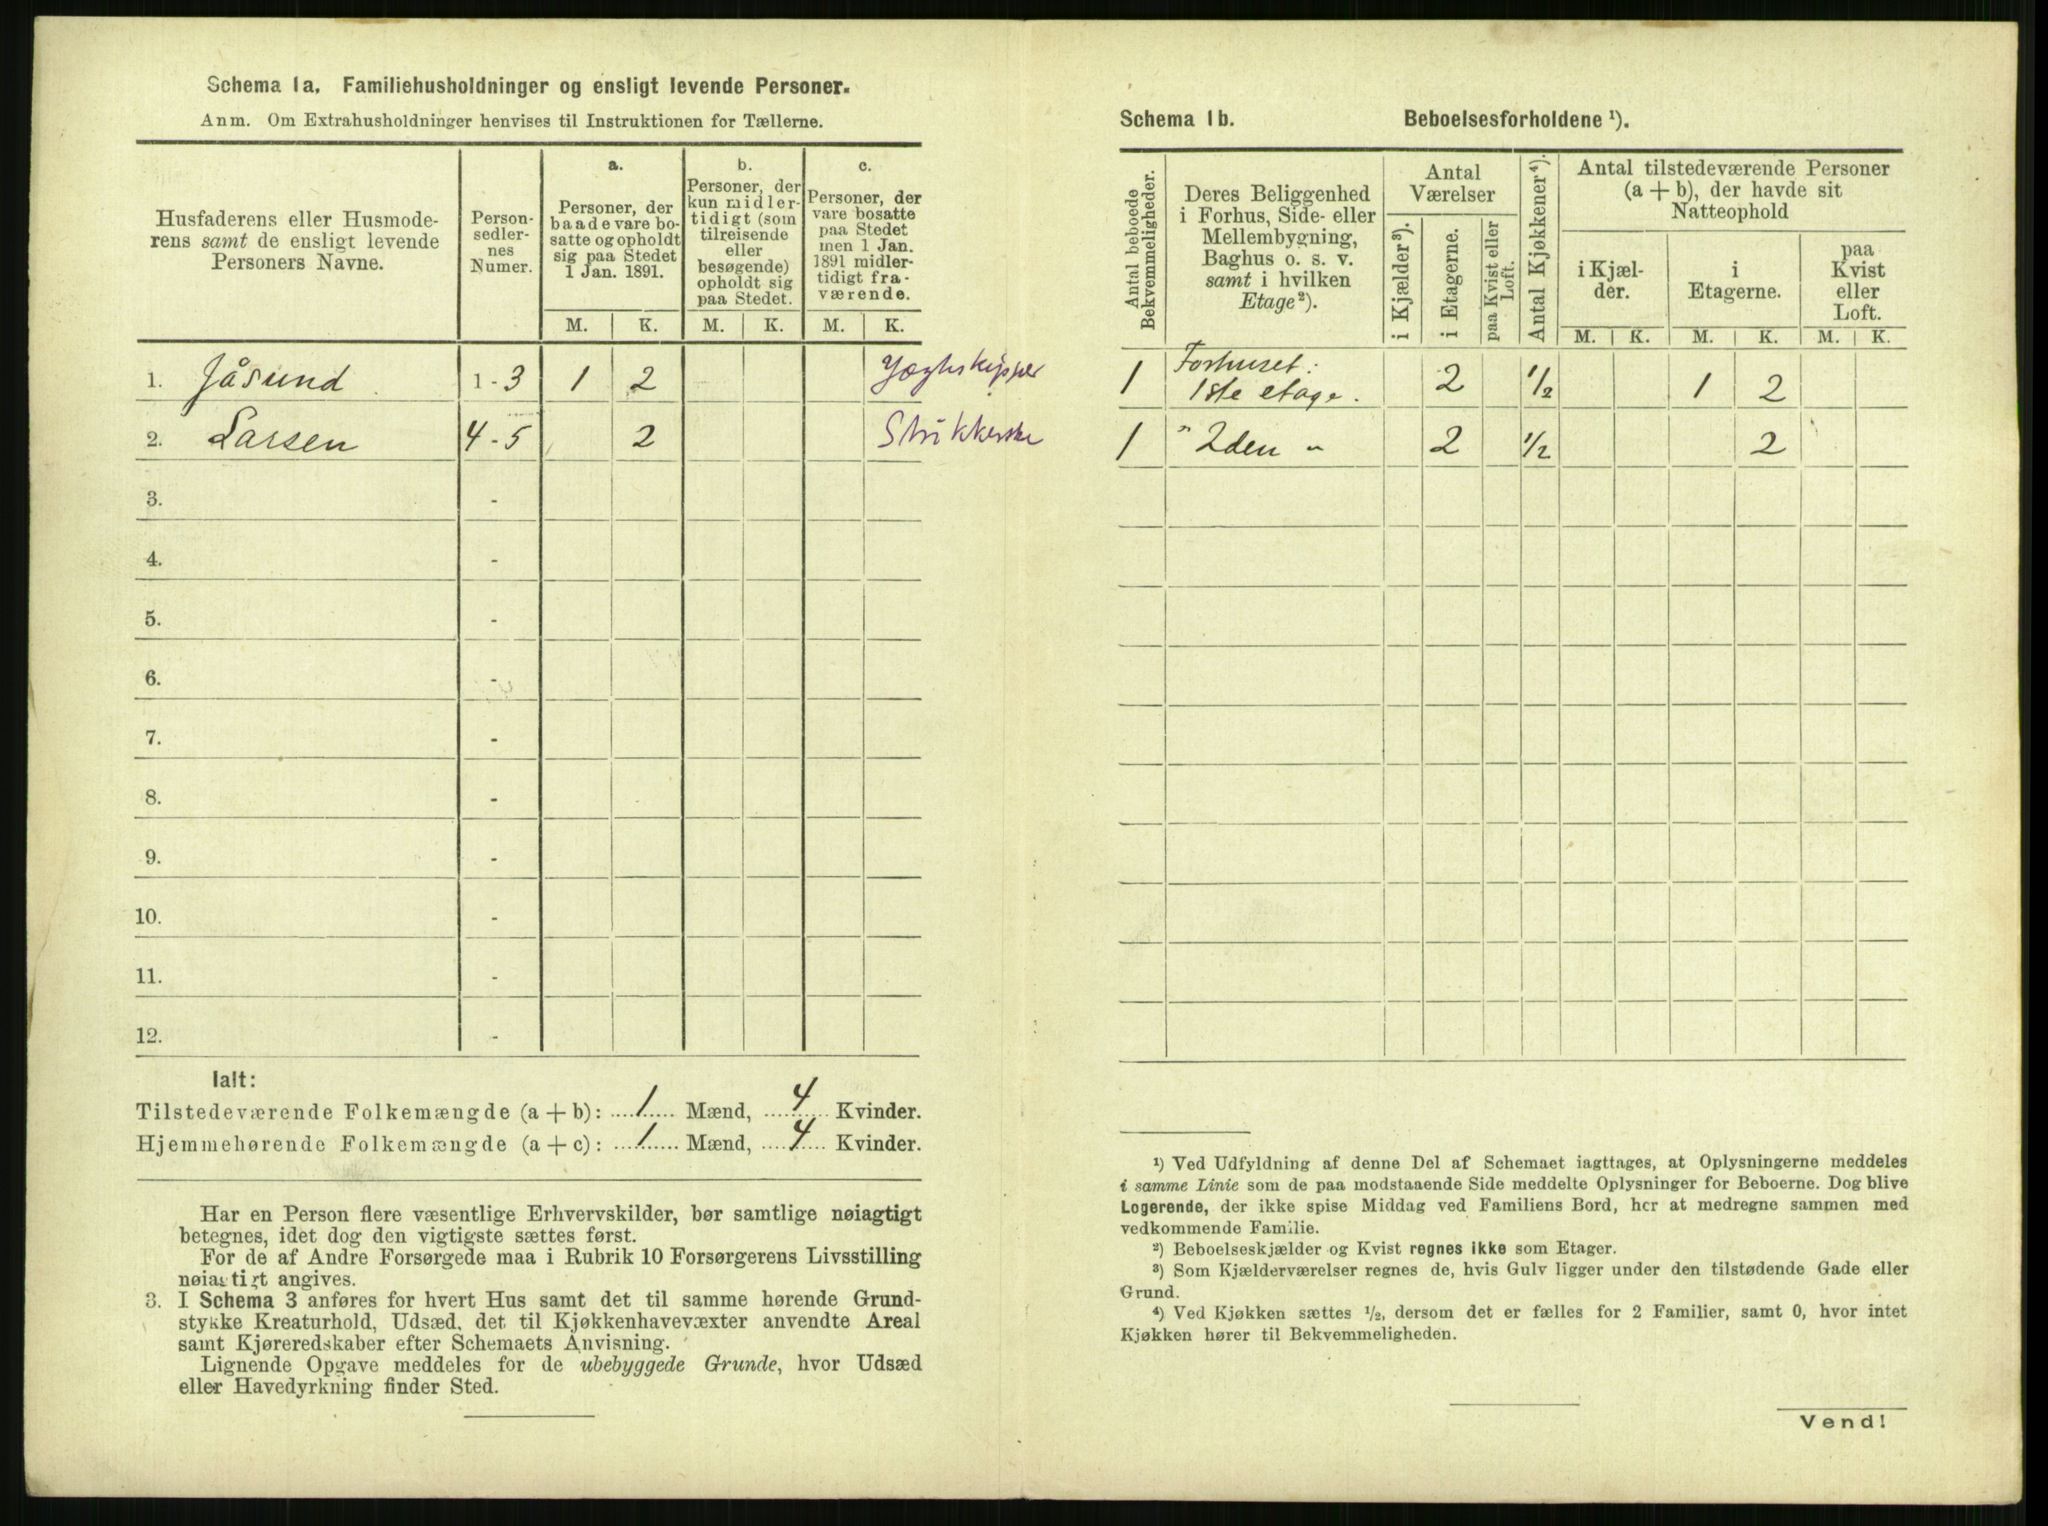 Schema 1a. Familiehusholdninger og ensligt levende Personer.
Anm. Om Extrahusholdninger henvises til Instruktionen for Tællerne.
Husfaderens eller Husmode-
rens samt de ensligt levende
Personers Navne.
Person-
sedler-
nes
Numer.
a.
Personer, der
baade vare bo-
satte og opholdt
sig paa Stedet
1 Jan. 1891.
b.
Personer, der
kun midler-
tidigt (som
tilreisende
eller
besøgende)
opholdt sig
paa Stedet.
c.
Personer, der
vare bosatte
paa Stedet
men 1 Jan.
1891 midler-
tidigt fra-
værende.
M. K. M. K. M. K.
1. Jåsund 1 - 3 1 2 Jægtskipper
2. Larsen 4 - 5 2 Strikkerske
3. -
4. -
5. -
6. -
7. -
8. -
9. -
10. -
11. -
12. -
Ialt:
Tilstedeværende Folkemængde (a + b): 1 Mænd, 4 Kvinder.
Hjemmehørende Folkemængde (a + c): 1 Mænd, 4 Kvinder.
Har en Person flere væsentlige Erhvervskilder, bør samtlige nøiagtigt
betegnes, idet dog den vigtigste sættes først.
For de af Andre Forsørgede maa i Rubrik 10 Forsørgerens Livsstilling
nøiagtigt angives.
3. I Schema 3 anføres for hvert Hus samt det til samme hørende Grund-
stykke Kreaturhold, Udsæd, det til Kjøkkenhavevæxter anvendte Areal
samt Kjøreredskaber efter Schemaets Anvisning.
Lignende Opgave meddeles for de ubebyggede Grunde, hvor Udsæd
eller Havedyrkning finder Sted.
Schema 1b. Beboelsesforholdene ¹).
Antal beboede
Bekvemmeligheder.
Deres Beliggenhed
i Forhus, Side- eller
Mellembygning,
Baghus o. s. v.
samt i hvilken
Etage ²).
Antal
Værelser
i Kjælder ³).
i Etagerne.
paa Kvist eller
Loft.
Antal Kjøkkener ⁴).
Antal tilstedeværende Personer
(a + b), der havde sit
Natteophold
i Kjæl-
der.
i
Etagerne.
paa
Kvist
eller
Loft.
M. K. M. K. M. K.
1 Forhuset:
1ste etage. 2 1/2 1 2
1 " 2den " 2 1/2 2
¹) Ved Udfyldning af denne Del af Schemaet iagttages, at Oplysningerne meddeles
i samme Linie som de paa modstaaende Side meddelte Oplysninger for Beboerne. Dog blive
Logerende, der ikke spise Middag ved Familiens Bord, her at medregne sammen med
vedkommende Familie.
²) Beboelseskjælder og Kvist regnes ikke som Etager.
³) Som Kjælderværelser regnes de, hvis Gulv ligger under den tilstødende Gade eller
Grund.
⁴) Ved Kjøkken sættes ½, dersom det er fælles for 2 Familier, samt 0, hvor intet
Kjøkken hører til Bekvemmeligheden.
Vend!